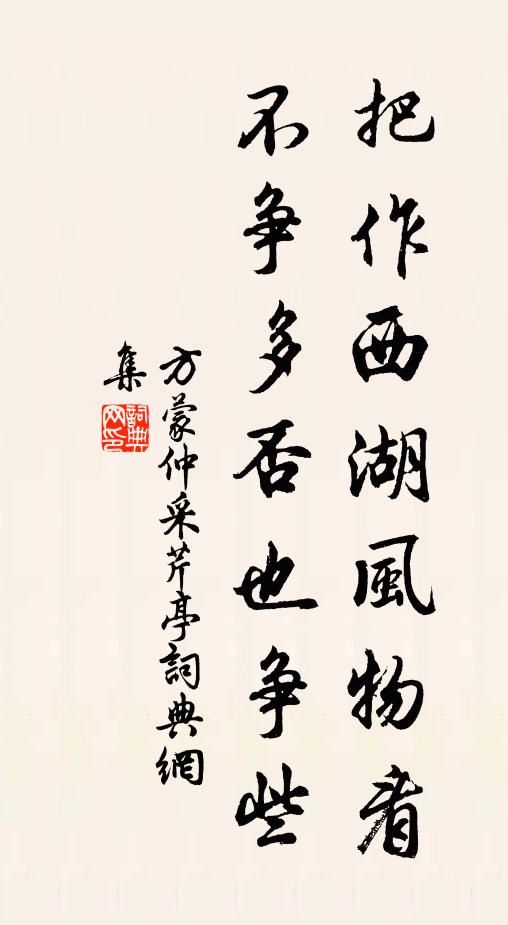 把作西湖風物看
不争多否也争些
方蒙仲采芹亭詞典網
集
詞典网印